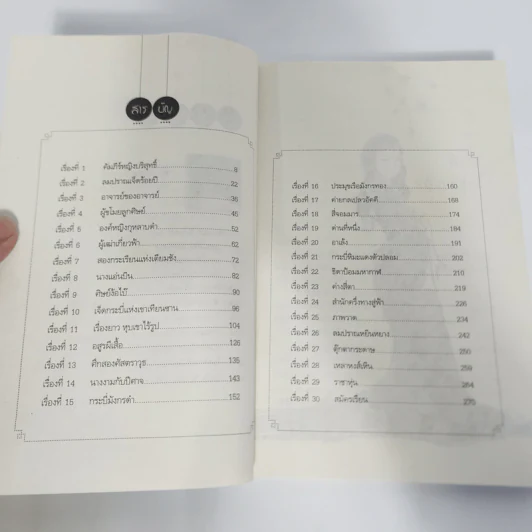 สารบัญ
เรื่องที่ 1 คัมภีร์หญิงบริสุทธิ์ 9
เรื่องที่ 2 ลมปราณเจ็ดร้อยปี 22
เรื่องที่ 3 อาจารย์ของอาจารย์ 36
เรื่องที่ 4 ผู้ขโมยลูกศิษย์ 45
เรื่องที่ 5 องค์หญิงกุหลาบดำ 52
เรื่องที่ 6 ผู้เฒ่าเกี่ยวฟ้า 62
เรื่องที่ 7 สองกระเรียนแห่งเตียมชัง 72
เรื่องที่ 8 นางแอ่นบิน 82
เรื่องที่ 9 ศิษย์ง้อไบ๊ 90
เรื่องที่ 10 เจ็ดกระบี่แห่งเขาเทียนซาน 96
เรื่องที่ 11 เรื่องยาว หุบเขาไร้รูป 104
เรื่องที่ 12 อสูรผีเสื้อ 126
เรื่องที่ 13 ศึกสองศัสตราวุธ 135
เรื่องที่ 14 นางงามกับปีศาจ 143
เรื่องที่ 15 กระบี่มังกรดำ 152
เรื่องที่ 16 ประมุขเรือมังกรทอง 160
เรื่องที่ 17 ค่ายกลเปลวอัคคี 168
เรื่องที่ 18 สี่จอมมาร 174
เรื่องที่ 19 ด่านที่หนึ่ง 184
เรื่องที่ 20 อาเล้ง 191
เรื่องที่ 21 กระบี่หิมะแดงตัวปลอม 202
เรื่องที่ 22 ธิดาป้อมมหากาฬ 210
เรื่องที่ 23 ค่างสีดา 219
เรื่องที่ 24 สำนักครึ่งทางสู่ฟ้า 226
เรื่องที่ 25 ภาพวาด 234
เรื่องที่ 26 ลมปราณหยินหยาง 242
เรื่องที่ 27 ตุ๊กตากระดาษ 250
เรื่องที่ 28 เหลาหงส์เหิน 259
เรื่องที่ 29 ราชาหุ่น 264
เรื่องที่ 30 สมัครเรียน 275